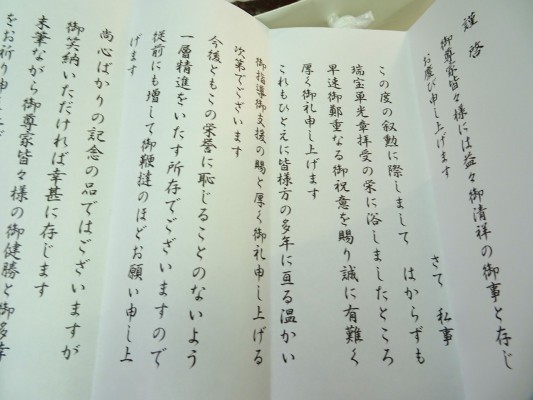 謹啓
御尊家皆々様には益々御清祥の御事と存じ
お慶び申し上げます
さて 私事
この度の叙勲に際しまして はからずも
瑞宝単光章拝受の栄に浴しましたところ
早速御鄭重なる御祝意を賜り誠に有難く
厚く御礼申し上げます
これもひとえに皆様方の多年に亘る温かい
御指導御支援の賜と厚く御礼申し上げる
次第でございます
今後ともこの栄誉に恥じることのないよう
一層精進をいたす所存でございますので
従前にも増して御鞭撻のほどお願い申し上
げます
尚心ばかりの記念の品ではございますが
御笑納いただければ幸甚に存じます
末筆ながら御尊家皆々様の御健勝と御多幸
をお祈り申し上